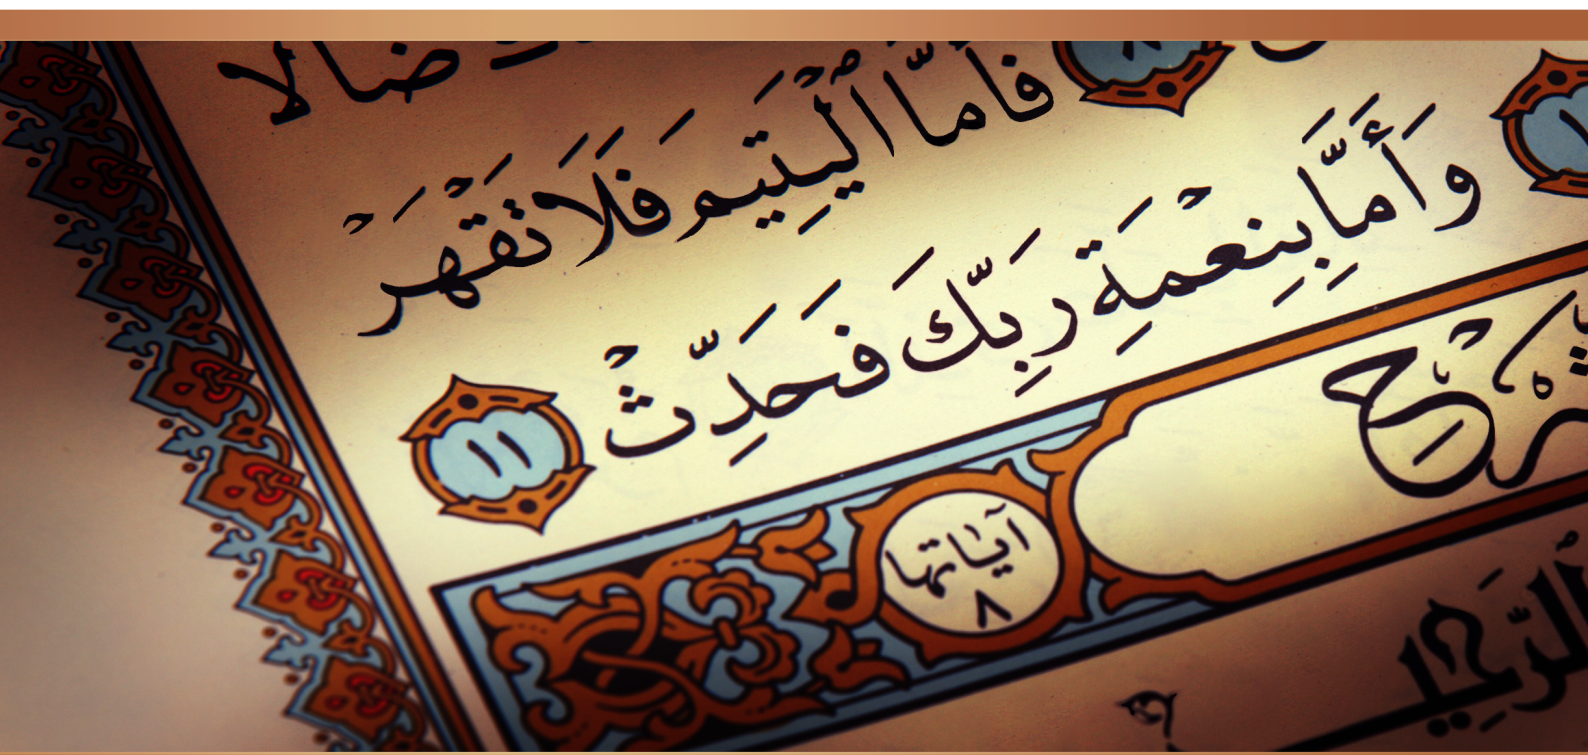 ضَالًّا
٨ فَأَمَّا ٱلْيَتِيمَ فَلَا تَقْهَرْ
وَأَمَّا بِنِعْمَةِ رَبِّكَ فَحَدِّثْ ١١
آيَاتُها
٨